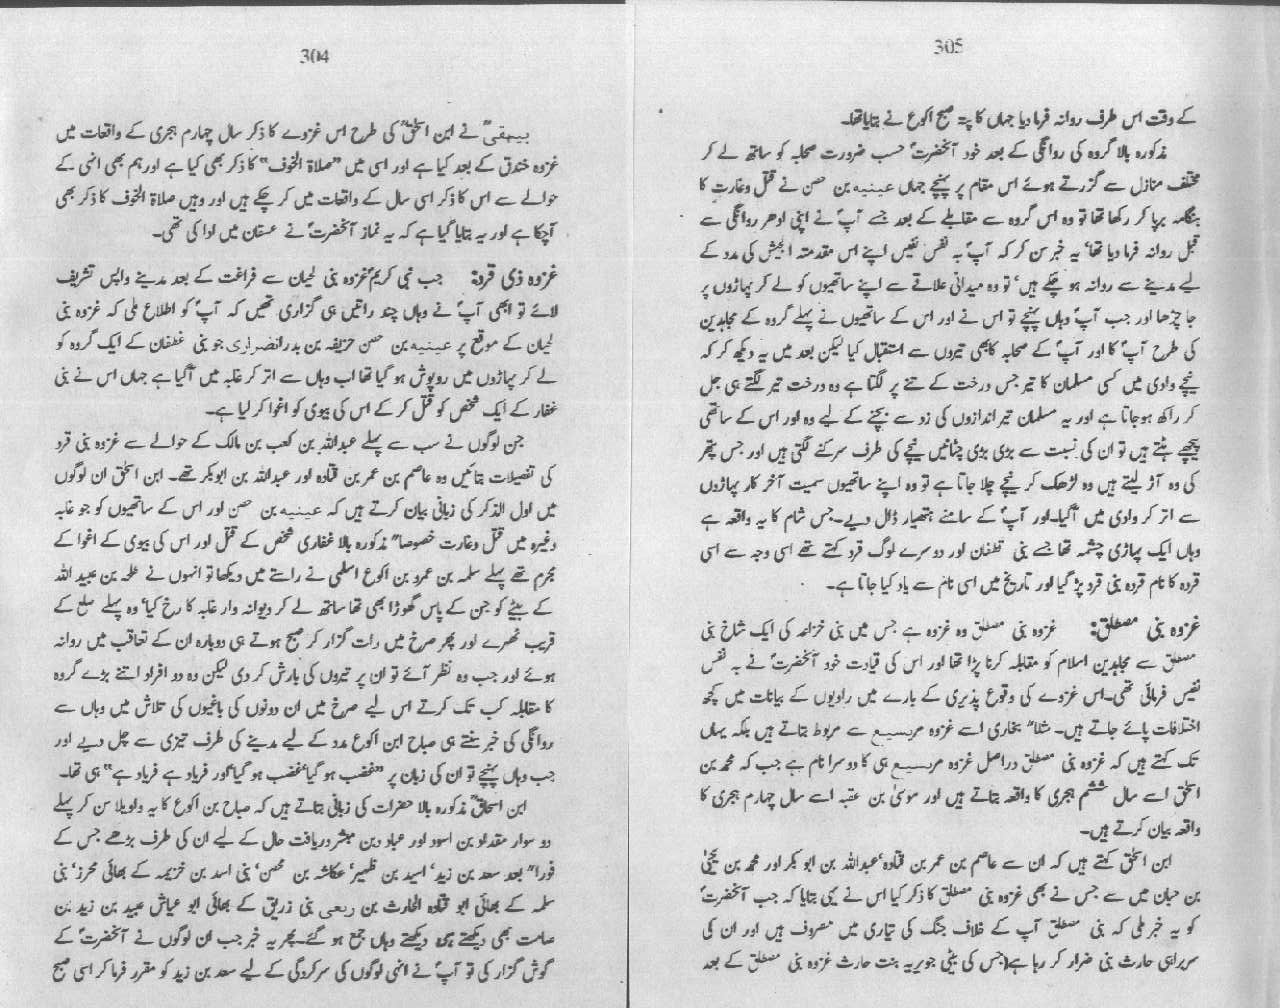 304
بیہقیؒ نے ابن اسحٰقؒ کی طرح اس غزوے کا ذکر سال چہارم ہجری کے واقعات میں
غزوہ خندق کے بعد کیا ہے اور اسی میں "صلاۃ الخوف" کا ذکر بھی کیا ہے اور ہم بھی انہی کے
حوالے سے اس کا ذکر اسی سال کے واقعات میں کر چکے ہیں اور وہیں صلاۃ الخوف کا ذکر بھی
آچکا ہے اور یہ بتایا گیا ہے کہ یہ نماز آنحضرتؐ نے عسفان میں ادا کی تھی۔
غزوہ ذی قردہ جب نبی کریمؐ غزوہ بنی لحیان سے فراغت کے بعد مدینے واپس تشریف
لائے تو ابھی آپؐ نے وہاں چند راتیں ہی گزاری تھیں کہ آپؐ کو اطلاع ملی کہ غزوہ بنی
لحیان کے موقع پر عینیہ بن حصن حزیفہ بن بدر انضراری جو بنی غطفان کے ایک گروہ کو
لے کر پہاڑوں میں روپوش ہو گیا تھا اب وہاں سے اتر کر غابہ میں آگیا ہے جہاں اس نے بنی
غفار کے ایک شخص کو قتل کر کے اس کی بیوی کو اغوا کر لیا ہے۔
جن لوگوں نے سب سے پہلے عبداللہ بن کعب بن مالک کے حوالے سے غزوہ بنی قرد
کی تفصیلات بتائیں وہ عاصم بن عمر بن قتادہ اور عبداللہ بن ابوبکر تھے۔ ابن اسحٰق ان لوگوں
میں اول الذکر کی زبانی بیان کرتے ہیں کہ عینیہ بن حصن اور اس کے ساتھیوں کو جو غابہ
وغیرہ میں قتل وغارت خصوصا" مذکورہ بالا غفاری شخص کے قتل اور اس کی بیوی کے اغوا کے
مجرم تھے پہلے سلمہ بن عمرو بن اکوع اسلمی نے راستے میں دیکھا تو انہوں نے طلحہ بن عبید اللہ
کے بیٹے کو جن کے پاس گھوڑا بھی تھا ساتھ لے کر دیوانہ وار غابہ کا رخ کیا' وہ پہلے سلع کے
قریب ٹھہرے اور پھر صرخ میں رات گزار کر صبح ہوتے ہی دوبارہ ان کے تعاقب میں روانہ
ہوئے اور جب وہ نظر آئے تو ان پر تیروں کی بارش کر دی لیکن وہ دو افراد اتنے بڑے گروہ
کا مقابلہ کب تک کرتے اس لیے صرخ میں ان دونوں کی باغیوں کی تلاش میں وہاں سے
روانگی کی خبر سنتے ہی صباح ابن اکوع مدد کے لیے مدینے کی طرف تیزی سے چل دیے اور
جب وہاں پہنچے تو ان کی زبان پر "غضب ہو گیا' غضب ہو گیا' اور فریاد ہے فریاد ہے" ہی تھا۔
ابن اسحاقؒ مذکورہ بالا حضرات کی زبانی بتاتے ہیں کہ صباح بن اکوع کا یہ واویلا سن کر پہلے
دو سوار مقداد بن اسود اور عباد بن مبشر دریافت حال کے لیے ان کی طرف بڑھے جس کے
فورا" بعد سعد بن زید' اسید بن ظہیر' عکاشہ بن محصن' بنی اسد بن خزیمہ کے بھائی محرز' بنی
سلمہ کے بھائی ابو قتادہ الحارث بن ربعی بنی زریق کے بھائی ابو عیاش عبید بن زید بن
صامت بھی دیکھتے ہی دیکھتے وہاں جمع ہو گئے۔ پھر یہ خبر جب ان لوگوں نے آنحضرتؐ کے
گوش گزار کی تو آپؐ نے انہی لوگوں کی سرکردگی کے لیے سعد بن زید کو مقرر فرما کر اسی صبح
305
کے وقت اس طرف روانہ فرما دیا جہاں کا پتہ صبح اکوع نے بتایا تھا۔
مذکورہ بالا گروہ کی روانگی کے بعد خود آنحضرتؐ حسب ضرورت صحابہ کو ساتھ لے کر
مختلف منازل سے گزرتے ہوئے اس مقام پر پہنچے جہاں عینیہ بن حصن نے قتل وغارت کا
ہنگامہ برپا کر رکھا تھا تو وہ اس گروہ سے مقابلے کے بعد جسے آپؐ نے اپنی ادھر روانگی سے
قبل روانہ فرما دیا تھا' یہ خبر سن کر کہ آپؐ بہ نفس نفیس اپنے اس مقدمتہ الجیش کی مدد کے
لیے مدینے سے روانہ ہو چکے ہیں' تو وہ میدانی علاقے سے اپنے ساتھیوں کو لے کر پہاڑوں پر
جا چڑھا اور جب آپؐ وہاں پہنچے تو اس نے اور اس کے ساتھیوں نے پہلے گروہ کے مجاہدین
کی طرح آپؐ کا اور آپؐ کے صحابہ کا بھی تیروں سے استقبال کیا لیکن بعد میں یہ دیکھ کر کہ
نیچے وادی میں کسی مسلمان کا تیر جس درخت کے تنے پر لگتا ہے وہ درخت تیر لگتے ہی جل
کر راکھ ہو جاتا ہے اور یہ مسلمان تیر اندازوں کی زد سے بچنے کے لیے وہ اور اس کے ساتھی
پیچھے ہٹتے ہیں تو ان کی نسبت سے بڑی بڑی چٹانیں نیچے کی طرف سرکنے لگتی ہیں اور جس پتھر
کی وہ آڑ لیتے ہیں وہ لڑھک کر نیچے چلا جاتا ہے تو وہ اپنے ساتھیوں سمیت آخر کار پہاڑوں
سے اتر کر وادی میں آگیا۔ اور آپؐ کے سامنے ہتھیار ڈال دیے۔ جس شام کا یہ واقعہ ہے
وہاں ایک پہاڑی چشمہ تھا جسے بنی غطفان اور دوسرے لوگ قرد کہتے تھے اسی وجہ سے اسی
قردہ کا نام قردہ بنی قرد پڑ گیا اور تاریخ میں اسی نام سے یاد کیا جاتا ہے۔
غزوہ بنی مصطلق: غزوہ بنی مصطلق وہ غزوہ ہے جس میں بنی خزاعہ کی ایک شاخ بنی
مصطلق سے مجاہدین اسلام کو مقابلہ کرنا پڑا تھا اور اس کی قیادت خود آنحضرتؐ نے بہ نفس
نفیس فرمائی تھی۔ اس غزوے کی وقوع پذیری کے بارے میں راویوں کے بیانات میں کچھ
اختلافات پائے جاتے ہیں۔ مثلا" بخاری اسے غزوہ مریسیع سے مربوط بتاتے ہیں بلکہ یہاں
تک کہتے ہیں کہ غزوہ بنی مصطلق دراصل غزوہ مریسیع ہی کا دوسرا نام ہے جب کہ محمد بن
اسحٰق اسے سال ششم ہجری کا واقعہ بتاتے ہیں اور موسیٰ بن عقبہ اسے سال چہارم ہجری کا
واقعہ بیان کرتے ہیں۔
ابن اسحٰق کہتے ہیں کہ ان سے عاصم بن عمر بن قتادہ' عبداللہ بن ابو بکر اور محمد بن یحییٰ
بن حبان میں سے جس نے بھی غزوہ بنی مصطلق کا ذکر کیا اس نے یہی بتایا کہ جب آنحضرتؐ
کو یہ خبر ملی کہ بنی مصطلق آپ کے خلاف جنگ کی تیاری میں مصروف ہیں اور ان کی
سربراہی حارث بنی ضرار کر رہا ہے (جس کی بیٹی جویریہ بنت حارث غزوہ بنی مصطلق کے بعد